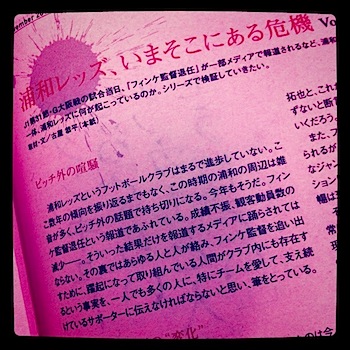 vember 20
浦和レッズ、いまそこにある危機 Vo
J1第31節・G大阪戦の試合当日、「フィンケ監督退任」が一部メディアで報道されるなど、浦和
一体、浦和レッズに何が起こっているのか。シリーズで検証していきたい。
取材・文/古屋
ピッチ外の喧騒
浦和レッズというフットボールクラブはまるで進歩していない。こ
こ数年の傾向を振り返るまでもなく、この時期の浦和の周辺は雑
音が多く、ピッチ外の話題で持ち切りになる。今年もそうだ。フィン
ケ監督退任という報道であふれている。成績不振、観客動員数の
減少――。そういった結果だけを報道するメディアに踊らされては
ならない。その裏ではあらゆる人と人が絡み、フィンケを追い出
すために、躍起になって取り組んでいる人間がクラブ内にも存在す
るという事実を、一人でも多くの人に、特にチームを愛して、支え続
けているサポーターに伝えなければならないと思い、筆をとっている。
“変化”
拓也と、これ
ずないと断
いくだろう。
また、フ
られるが
なジャン
ション
幅は
常